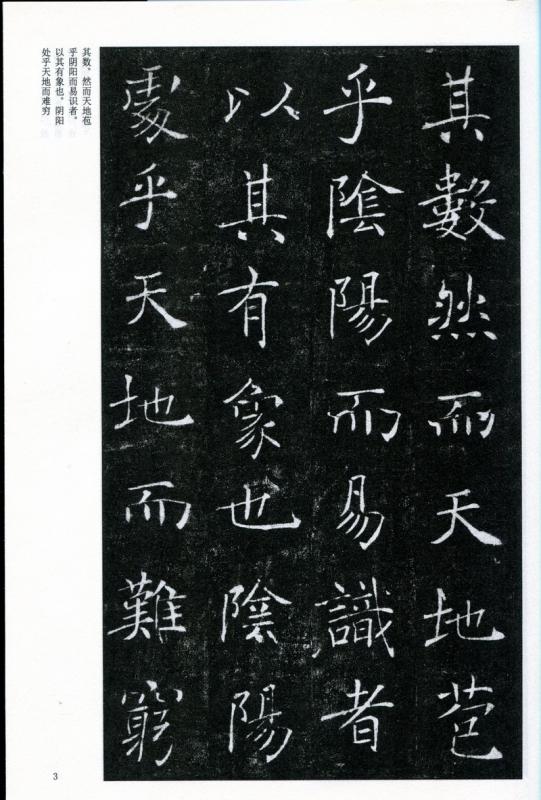 其數然而天地苞
乎陰陽而易識者
以其有象也陰陽
處乎天地而難窮
其数，然而天地苞
乎阴阳而易识者，
以其有象也。阴阳
处乎天地而难穷
3